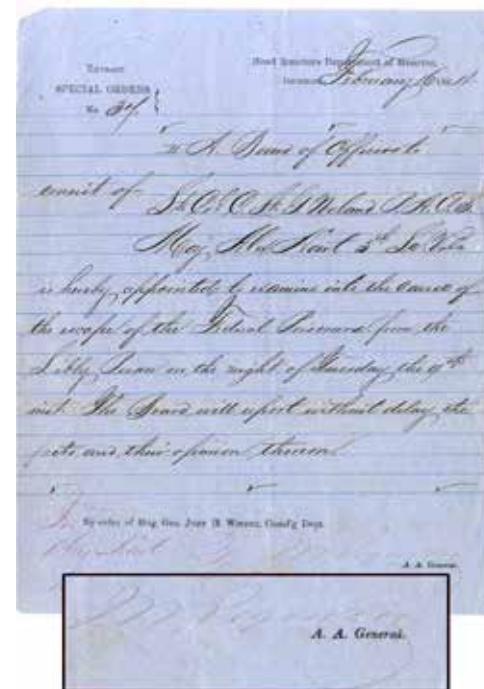 Extract
Head Quarters Department of Henrico,
SPECIAL ORDERS
February
No.
II A Board of Officers to
consist of
Lt. Col.
Maj.
is hereby appointed to examine into the cause of
the escape of the Federal Prisoners from the
Libby Prison on the night of Tuesday, the 9th
inst. The Board will report without delay, the
facts and their opinion thereon
By order of Brig. Gen. John H. Winder, Comd'g Dept.
A. A. General.
A. A. General.